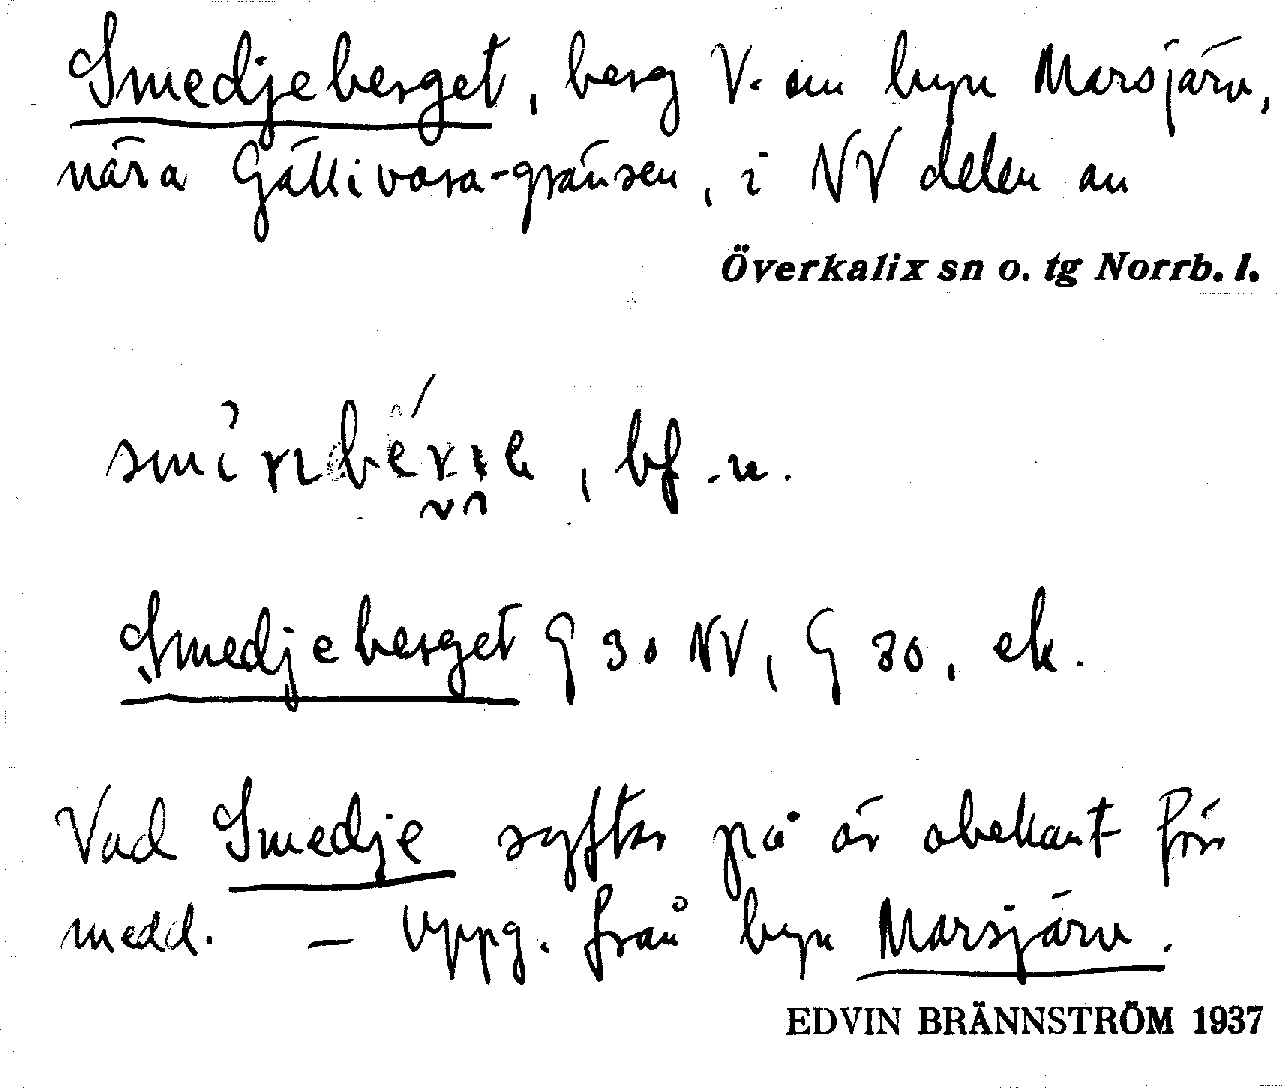 Smedjeberget, berg V. om byn Marsjärv,
nära Gällivara-gränsen, i NV delen av
Överkalix sn o. tg Norrb. l.
bf. n.
Smedjeberget G 30 NV, G 30, ek.
Vad Smedje syftar på är obekant för
medd. — Uppg. från byn Marsjärv.
EDVIN BRÄNNSTRÖM 1937